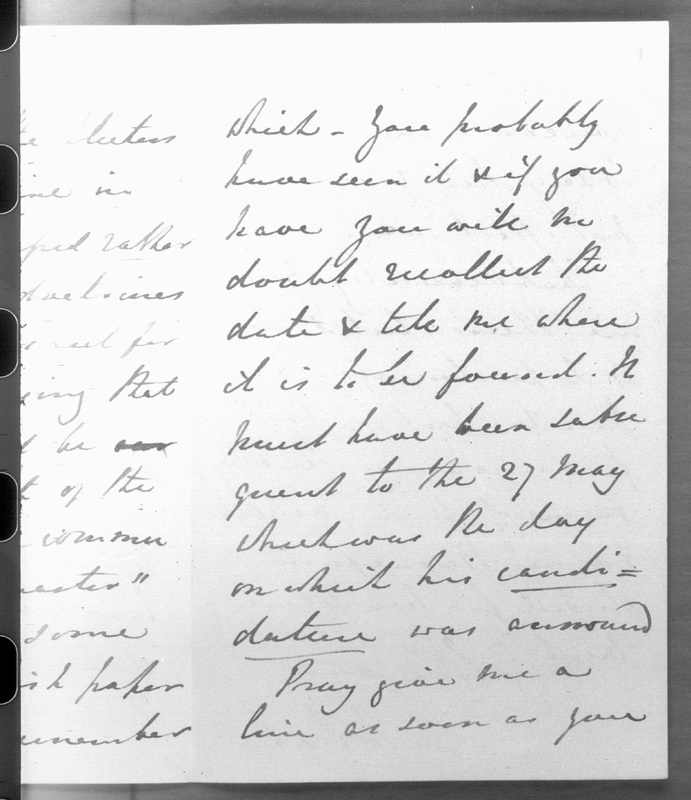 Letters
in
rather
for
that
be
of the
common
some
paper
which - you probably
have seen it & if you
have you will no
doubt recollect the
date & tell me where
it is to be found. It
must have been subse
quent to the 27 May
which was the day
on which his candi=
dature was annound
Pray give me a
line as soon as you